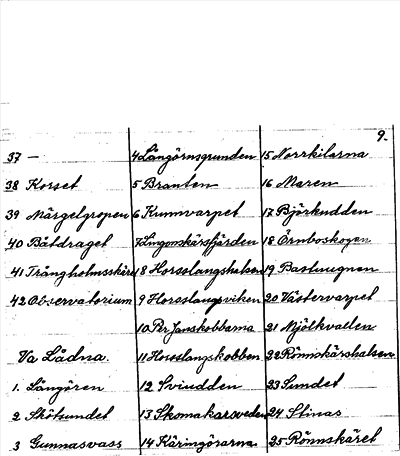 9.
37 —
38 Korset
39 Märgelgropen
40 Båtdraget
41 Trångholmsskäre
42 Observatorium
Va Lådna.
1. Långören
2 Skötsundet
3 Gunnasvass
4 Långörnsgrunden
5 Branten
6 Kumvarpet
8 Horsslangshalsen
9 Horsslangsviken
10 Per Jansskobbarna
11 Horsslangskobben
12 Sviudden
13 Skomakarveden
14 Käringörarna
15 Norrkilarna
16 Maren
17 Björkudden
18 Örnboskogen
19 Bastuugnen
20 Västervarpet
21 Mjölkvallen
22 Rönnskärshalsen
23 Sundet
24 Stinas
25 Rönnskäret